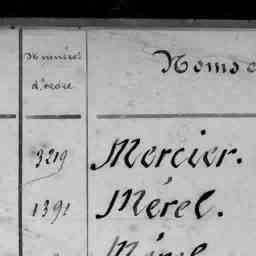 Numéros
d'ordre
Noms
3219 Mercier.
1391 Mérel.